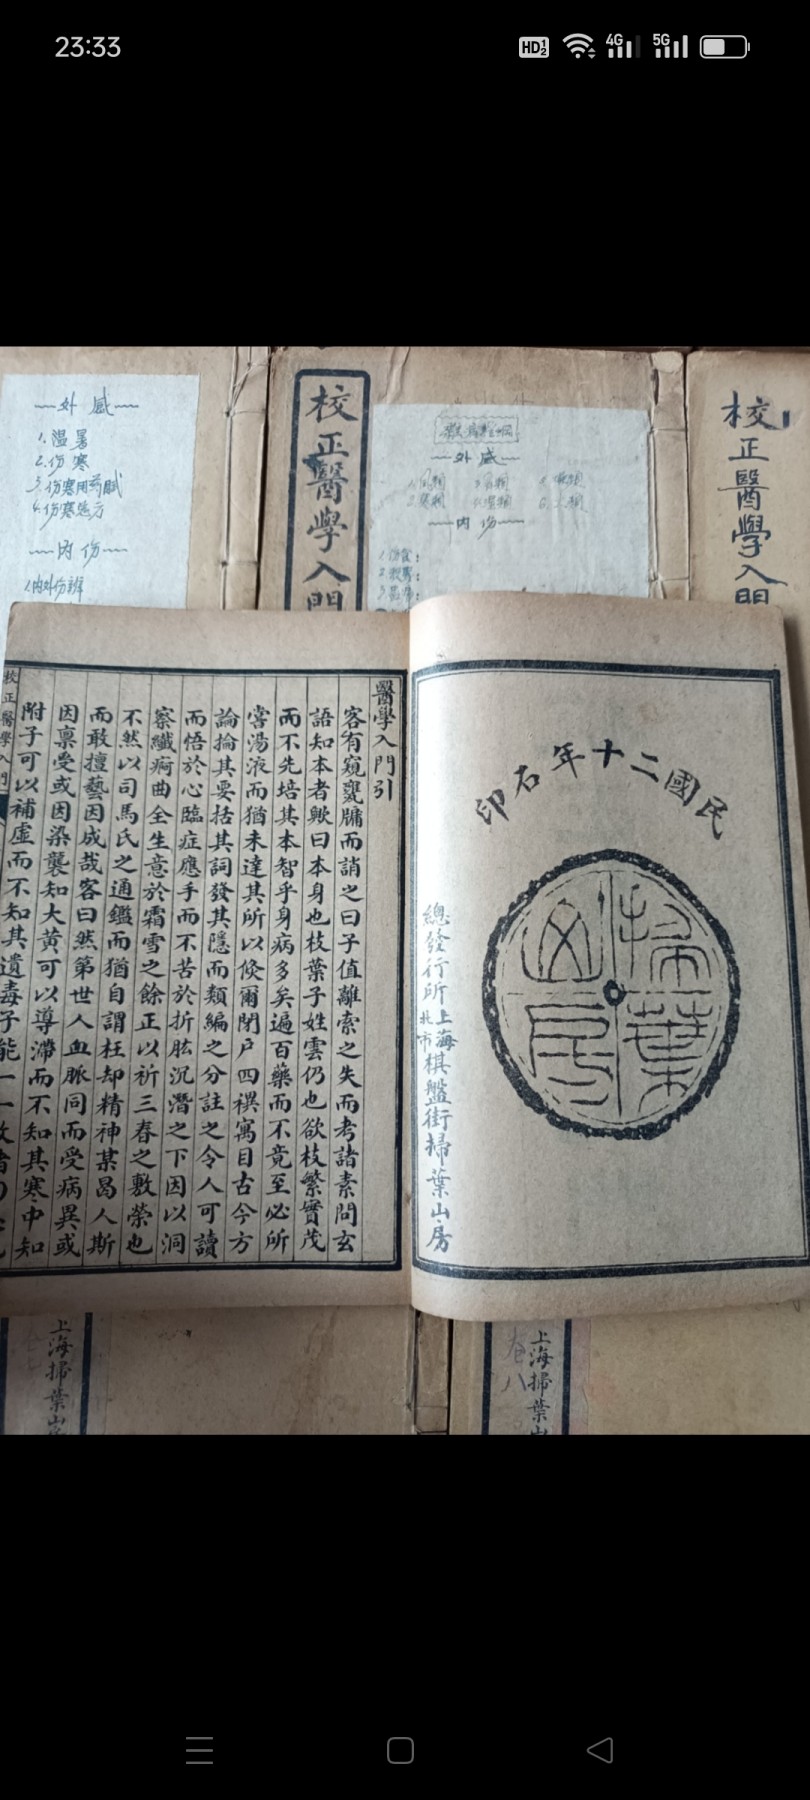 23:33
HD 1 2
4G
5G
外感
1.温暑
2.伤寒
3.伤寒用药赋
4.伤寒选方
内伤
1.内外伤辨
校正醫學入門
外感
内伤
校正醫學入門
民國二十年石印
掃葉山房
總發行所上海北市棋盤街掃葉山房
醫學入門引
客有窺甕牖而誚之曰子值離索之失而考諸素問玄
語知本者歟曰本身也枝葉子姓雲仍也欲枝繁實茂
而不先培其本智乎身病多矣遍百藥而不竟至必所
嘗湯液而猶未達其所以倐爾閉戶四禩寓目古今方
論掄其要括其詞發其隱而類編之分註之令人可讀
而悟於心臨症應手而不苦於折肱沉潛之下因以洞
察纖疴曲全生意於霜雪之餘正以祈三春之敷榮也
不然以司馬氏之通鑑而猶自謂枉却精神某曷人斯
而敢擅藝因成哉客曰然第世人血脈同而受病異或
因禀受或因染襲知大黃可以導滯而不知其寒中知
附子可以補虛而不知其遺毒子能一一
校正醫學入門
上海掃葉山房
卷八
上海掃葉山